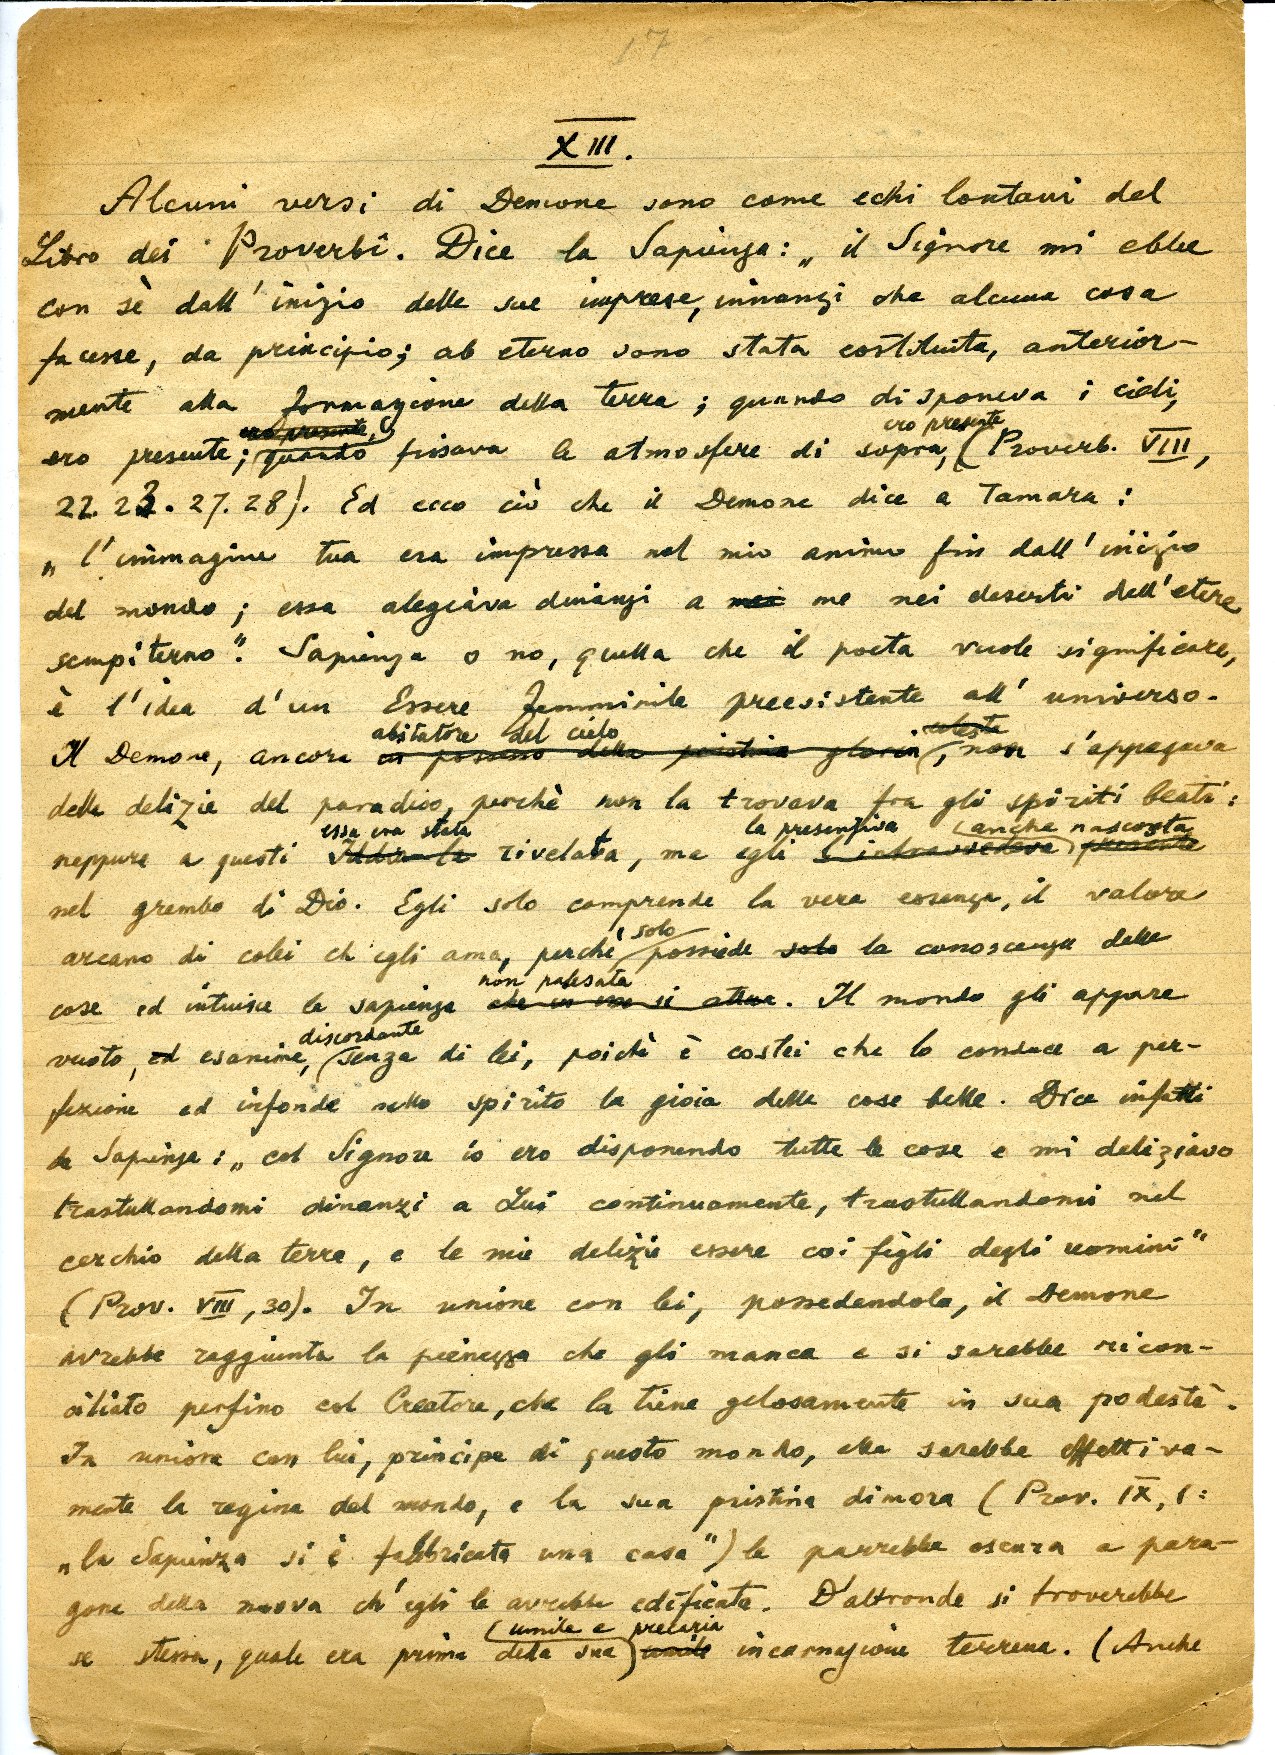 17
XIII.
Alcuni versi di Demone sono come echi lontani del
Libro dei Proverbî. Dice la Sapienza: „ il Signore mi ebbe
con sè dall' inizio delle sue imprese, innanzi che alcuna cosa
facesse, da principio; ab eterno sono stata costituita, anterior-
mente alla formazione della terra; quando disponeva i cieli,
era presente, ero presente
ero presente; quando fissava le atmosfere di sopra, (Proverb. VIII,
22. 23. 27. 28). Ed ecco ciò che il Demone dice a Tamara:
„ l' immagine tua era impressa nel mio animo fin dall' inizio
del mondo; essa alegiava dinanzi a me nei deserti dell' etere
sempiterno“. Sapienza o no, quella che il poeta vuole significare,
è l' idea d' un Essere femminile preesistente all' universo.
abitatore del cielo celeste
Il Demone, ancora in possesso della pristina gloria, non s' appagava
delle delizie del paradiso, perchè non la trovava fra gli spiriti beati:
essa era stata la presentiva anche nascosta
neppure a questi Iddio la rivelata, ma egli l' intravvedeva presente
nel grembo di Dio. Egli solo comprende la vera essenza, il valore
solo
arcano di colei ch' egli ama, perchè possiede solo la conoscenza delle
non palesata
cose ed intuisce la sapienza che in esse si attua. Il mondo gli appare
discordante
vuoto, ed esanime, senza di lei, poichè è costei che lo conduce a per-
fezione ed infonde nello spirito la gioia delle cose belle. Dice infatti
la Sapienza: „ col Signore io ero disponendo tutte le cose e mi deliziavo
trastullandomi dinanzi a Lui continuamente, trastullandomi nel
cerchio della terra, e le mie delizie essere coi figli degli uomini“
(Prov. VIII, 30). In unione con lei, possedendola, il Demone
avrebbe raggiunta la pienezza che gli manca e si sarebbe ricon-
ciliato perfino col Creatore, che la tiene gelosamente in sua podestà.
In unione con lui, principe di questo mondo, ella sarebbe effettiva-
mente la regina del mondo, e la sua pristina dimora (Prov. IX, 1:
„la Sapienza si è fabbricata una casa“) le parrebbe oscura a para-
gone della nuova ch' egli le avrebbe edificata. D' altronde si troverebbe
umile e precaria
se stessa, quale era prima della sua umile incarnazione terrena. (Anche